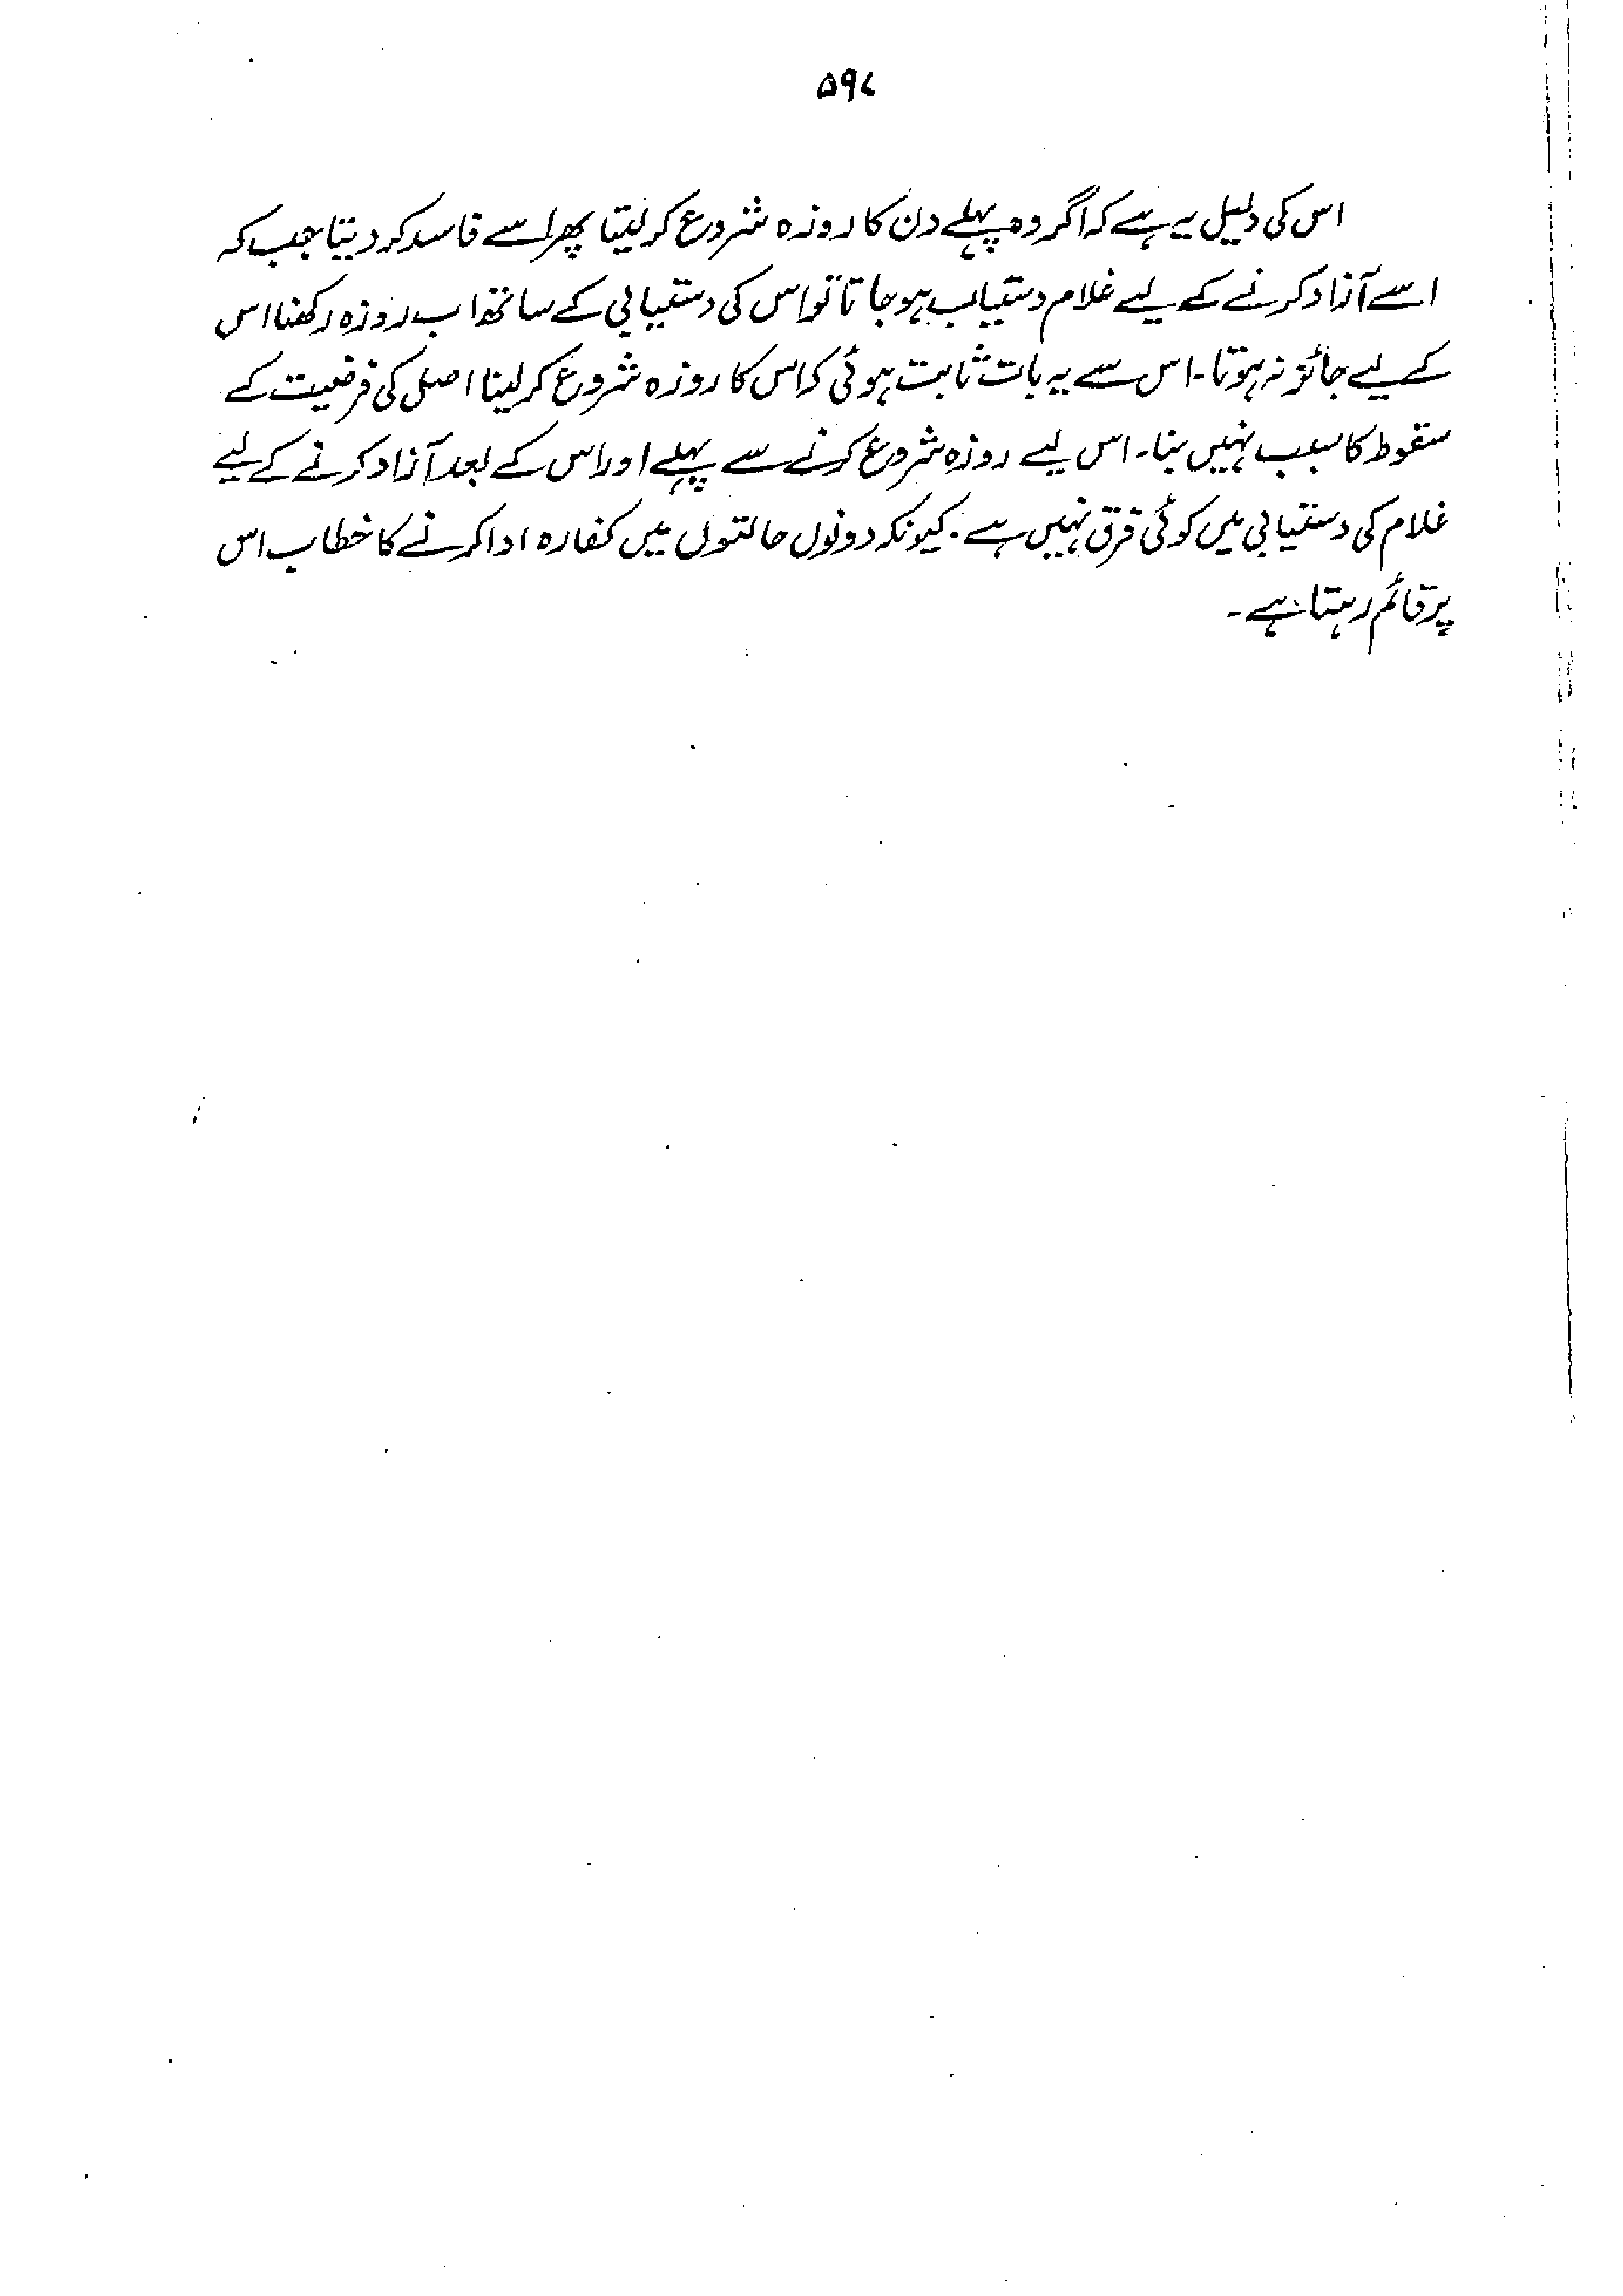 ۵۹۷
اس کی دلیل یہ ہے کہ اگر وہ پہلے دن کا روزہ شروع کر لیتا پھر اسے فاسد کر دیتا جب کہ
اسے آزاد کرنے کے لیے غلام دستیاب ہو جاتا تو اس کی دستیابی کے ساتھ اب روزہ رکھنا اس
کے لیے جائز نہ ہوتا۔ اس سے یہ بات ثابت ہوئی کہ اس کا روزہ شروع کر لینا اصل کی فرضیت کے
سقوط کا سبب نہیں بنا۔ اس لیے روزہ شروع کرنے سے پہلے اور اس کے بعد آزاد کرنے کے لیے
غلام کی دستیابی میں کوئی فرق نہیں ہے۔ کیونکہ دونوں حالتوں میں کفارہ ادا کرنے کا خطاب اس
پر قائم رہتا ہے۔